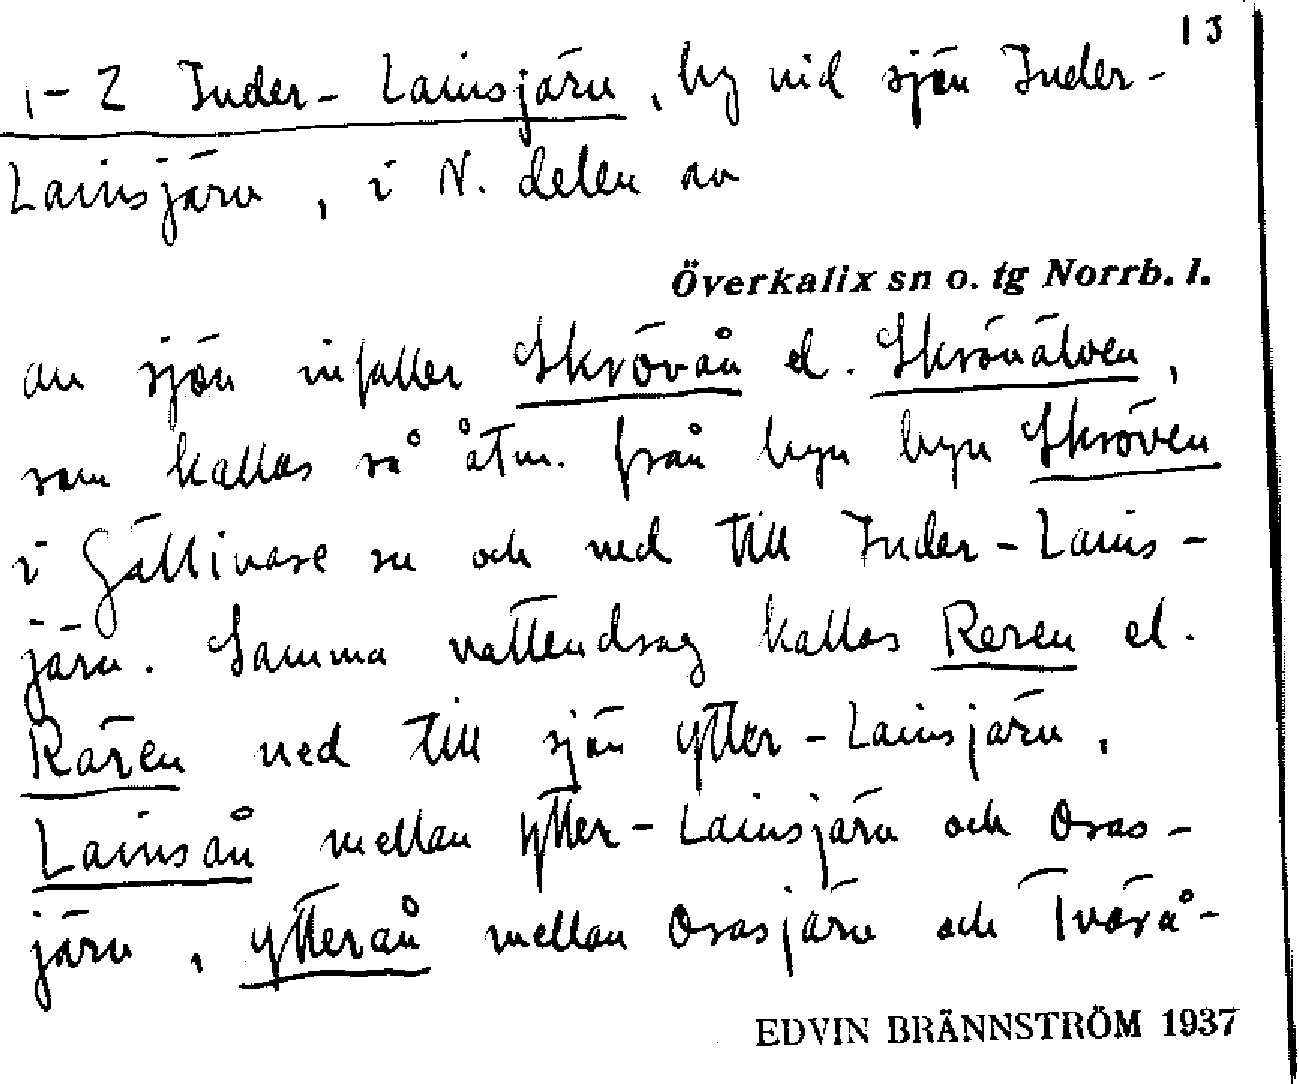 13
1-2 Inder-Lainsjärv, by vid sjön Inder-
Lainsjärv, i N. delen av
Överkalix sn o. tg Norrb. l.
au sjön infaller Skrövån el. Skrövälven,
som kallas så åtm. från byn byn Skröven
i Gällivare sn och ned till Inder-Lains-
järv. Samma vattendrag kallas Reren el.
Rären ned till sjön Ytter-Lainsjärv,
Lainsån mellan Ytter-Lainsjärv och Oras-
järv, Ytterån mellan Orasjärv och Tvärå-
EDVIN BRÄNNSTRÖM 1937